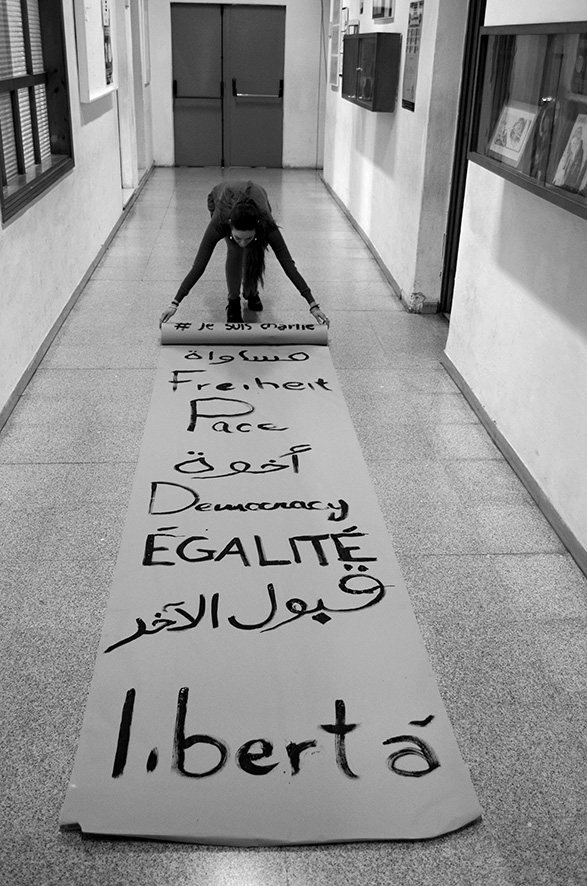 # Je suis charlie
مساواة
Freiheit
Pace
أخوة
Democracy
ÉGALITÉ
قبول الآخر
libertá